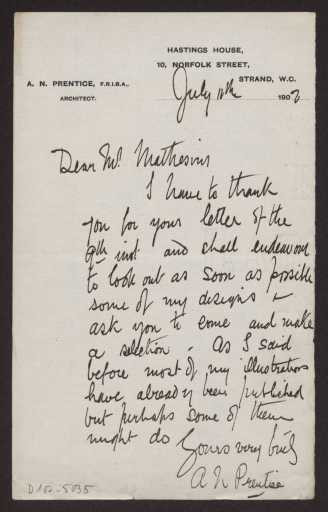 HASTINGS HOUSE,
10, NORFOLK STREET,
STRAND, W.C.
A. N. PRENTICE, F.R.I.B.A.,
ARCHITECT.
July 10th 1902
Dear Mr Mathesius
I have to thank
you for your letter of the
9th inst and shall endeavour
to look out as soon as possible
some of my designs &
ask you to come and make
a selection. As I said
before most of my illustrations
have already been published
but perhaps some of them
might do
Yours very truly
A N Prentice